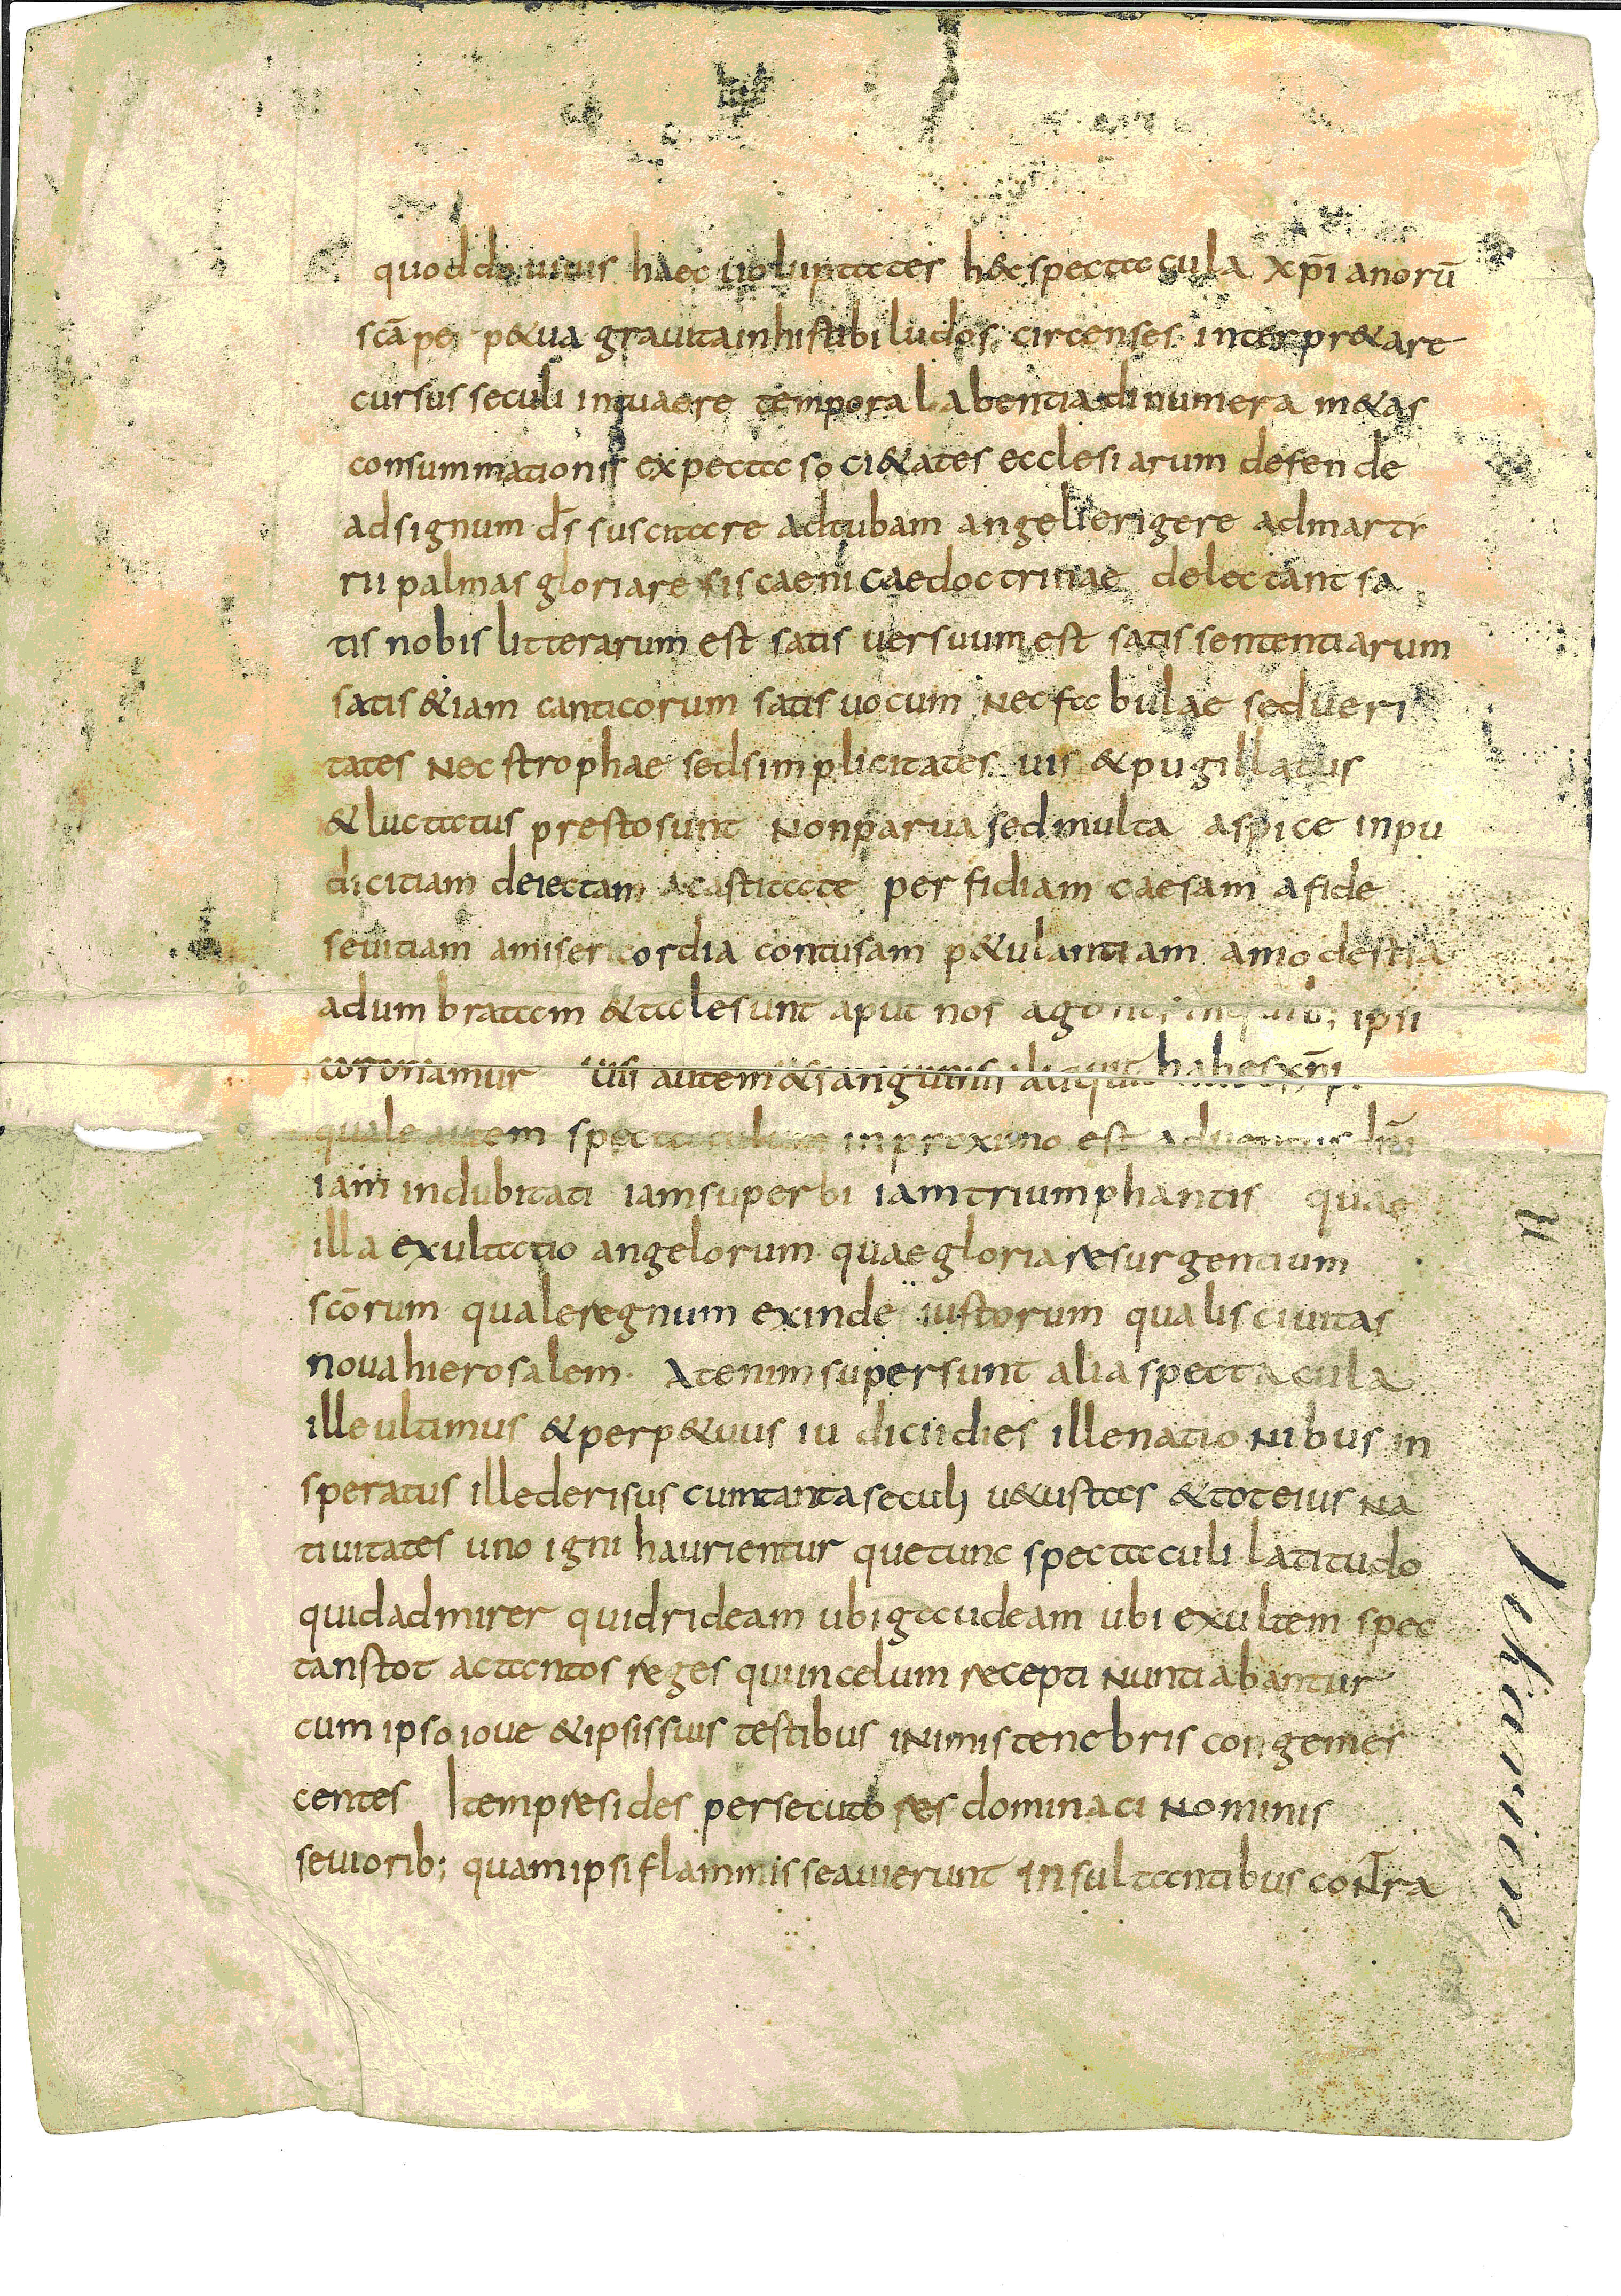 quod do uiuis haec uoluptates h&c spectacula xp̄ianorū
scā per p&ua gratuita in his tibi ludos circenses interpr&are
cursus seculi intuaere tempora labentia dinumera m&as
consummationis expecta soci&ates ecclesiarum defende
ad signum dī suscitare ad tubam angeli erigere ad martr
rii palmas gloriare si scaenicae doctrinae delectant sa
tis nobis litterarum est satis uersuum est satis sententiarum
satis &iam canticorum satis uocum Nec fabulae sed ueri
tates Nec strophae sed simplicitates uis & pugillatus
& luctatus presto sunt Non parua sed multa aspice inpu
dicitiam deiectam a castitate perfidiam caesam a fide
seuitiam a misericordia contusam p&ulantiam a modestia
adumbratam & tales sunt aput nos agones in quib; ipsi
coronamur Uis autem & sanguinis aliquid habes xp̄i
quale autem spectaculum in proximo est aduentus dn̄i
iam indubitati iam superbi iam triumphantis quae
illa exultatio angelorum quae gloria resurgentium
scōrum quale regnum exinde iustorum qualis ciuitas
noua hierosalem. At enim supersunt alia spectacula
ille ultimus & perp&uus iudicii dies ille nationibus in
speratus ille derisus cum tanta seculi u&ustas & tot eius na
tiuitates uno igni haurientur que tunc spectaculi latitudo
quid admirer quid rideam ubi gaudeam ubi exultem spec
tans tot ac tantos reges qui in celum recepti Nuntiabantur
cum ipso ioue & ipsis suis testibus in imis tenebris congemes
centes Item presides persecutores dominaci Nominis
seuiorib; quam ipsi flammis seauierunt insultantibus contra